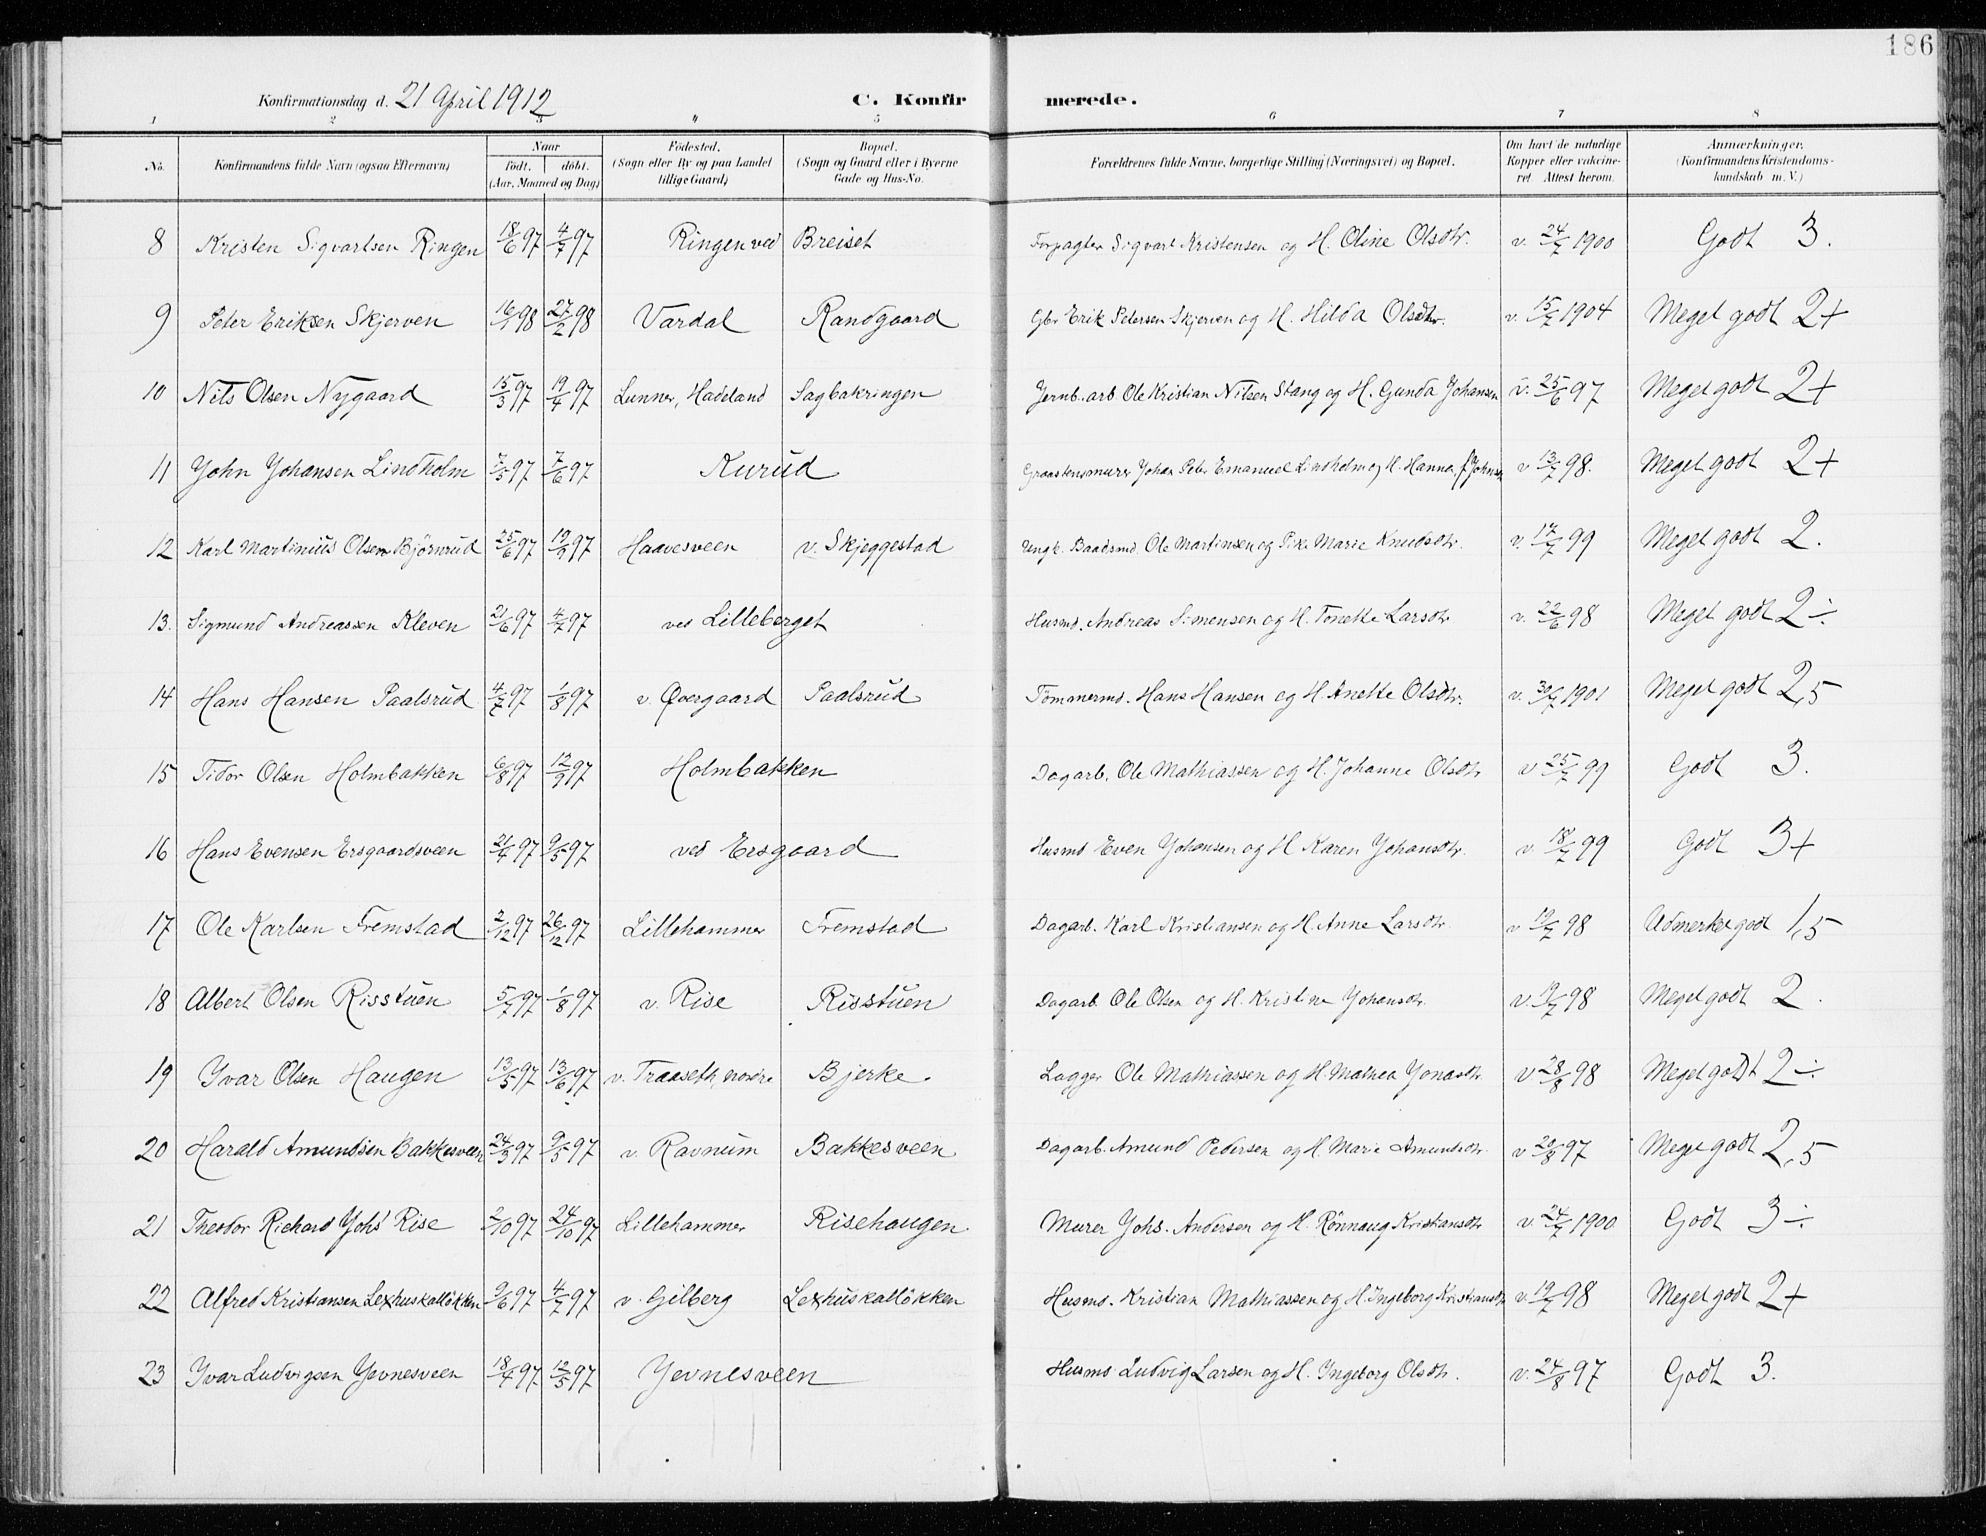 186
Konfirmationsdag d. 21 April 1912 C. Konfirmerede.
1 2 3 4 5 6 7 8
No. Konfirmandens fulde Navn (ogsaa Efternavn) Naar født. døbt. (Aar, Maaned og Dag) Fødested. (Sogn eller By og paa Landet tillige Gaard) Bopæl. (Sogn og Gaard eller i Byerne Gade og Hus-No. Forældrenes fulde Navne, borgerlige Stilling (Næringsvei) og Bopæl. Om havt de naturlige Kopper eller vakcineret. Attest herom. Anmærkninger. (Konfirmandens Kristendomskundskab m. V.)
8 Kristen Sigvartsen Ringen 18/6 97 4/7 97 Ringen ved Breiset Forpagter Sigvart Kristensen og H. Oline Olsdtr. v. 24/7 1900 Godt 3.
9 Peter Eriksen Skjerven 16/1 98 27/2 98 Vardal Randgaard Gbr Erik Petersen Skjerven og H. Hilda Olsdtr. v. 15/7 1904 Meget godt 2+
10 Nils Olsen Nygaard 15/3 97 19/4 97 Lunner, Hadeland Sagbakringen Jernb. arb Ole Kristian Nilsen Stang og H. Gunda Johansen v. 25/6 97 Meget godt 2+
11 John Johansen Lindholm 7/5 97 7/6 97 Kurud Graastensmurer Johan Peter Emanuel Lindholm og H. Hanna f Johnsen v 13/7 98. Meget godt 2+
12 Karl Martinius Olsen Bjørnrud 25/6 97 19/9 97 Haavesveen v. Skjeggestad Ungk. Baadsmd. Ole Martinsen og Pike Marie Knudsdtr. v. 17/7 99 Meget godt 2.
13. Sigmund Andreassen Kleven 21/6 97 4/7 97 ved Lilleberget Husmd. Andreas Simensen og H. Tonette Larsdtr v. 22/6 98 Meget godt 2÷
14 Hans Hansen Paalsrud 4/7 97 1/8 97 v. Øvergaard Paalsrud Tømmermd. Hans Hansen og H. Anette Olsdtr. v. 30/7 1901 Meget godt 2,5
15 Tidor Olsen Holmbakken 6/8 97 12/9 97 Holmbakken Dagarb. Ole Mathiassen og H. Johanne Olsdtr v 25/7 99 Godt 3.
16 Hans Evensen Ersgaardsveen 21/4 97 9/5 97 ved Ersgaard Husmd Even Johansen og H Karen Johansdtr. v 18/7 99 Godt 3+
17 Ole Karlsen Fremstad 2/12 97 26/12 97 Lillehammer Fremstad Dagarb. Karl Kristiansen og H. Anne Larsdtr. v 19/7 98 Udmerket godt 1,5
18 Albert Olsen Risstuen 5/7 97 1/8 97 v. Rise Risstuen Dagarb. Ole Olsen og H. Kristine Johansdtr. v. 19/7 98 Meget godt 2.
19 Ivar Olsen Haugen 13/5 97 13/6 97 v. Traaseth nordre Bjerke. Lægger Ole Mathiassen og H. Mathea Jonasdtr. v 28/8 98 Meget godt 2÷
20 Harald Amundsen Bakkesveen 24/3 97 9/5 97 v. Ravnum Bakkesveen Dagarb. Amund Pedersen og H. Marie Amundsdtr. v 20/8 97 Meget godt 2,5
21 Theodor Richard Johs' Rise 2/10 97 24/10 97 Lillehammer Risehaugen Murer Johs. Andersen og H. Rønnaug Kristiansdtr v. 24/7 1900 Godt 3÷
22 Alfred Kristiansen Lexhuskalløkken 9/6 97 4/7 97 v. Gilberg Lexhuskalløkken Husmd. Kristian Mathiassen og H. Ingeborg Kristiansdtr v. 19/7 98 Meget godt 2+
23 Ivar Ludvigsen Jevnesveen 18/4 97 12/5 97 Jevnesveen Husmd Ludvig Larsen og H. Ingeborg Olsdtr. v. 24/8 97 Godt 3.